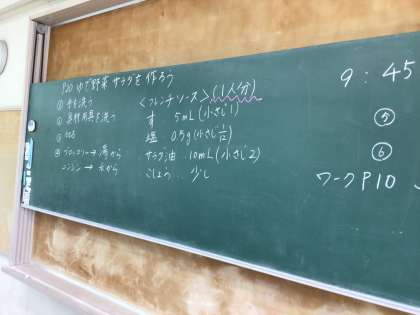 P20 ゆで野菜サラダを作ろう
① 手を洗う
② 食材用具を洗う
③ 切る
④ ブロッコリー→湯から
ニンジン→水から
<フレンチソース>(1人分)
す 5mL(小さじ1)
塩 0.5g(小さじ1/12)
サラダ油 10mL(小さじ2)
こしょう…少し
9:45
⑤
⑥
ワークP10